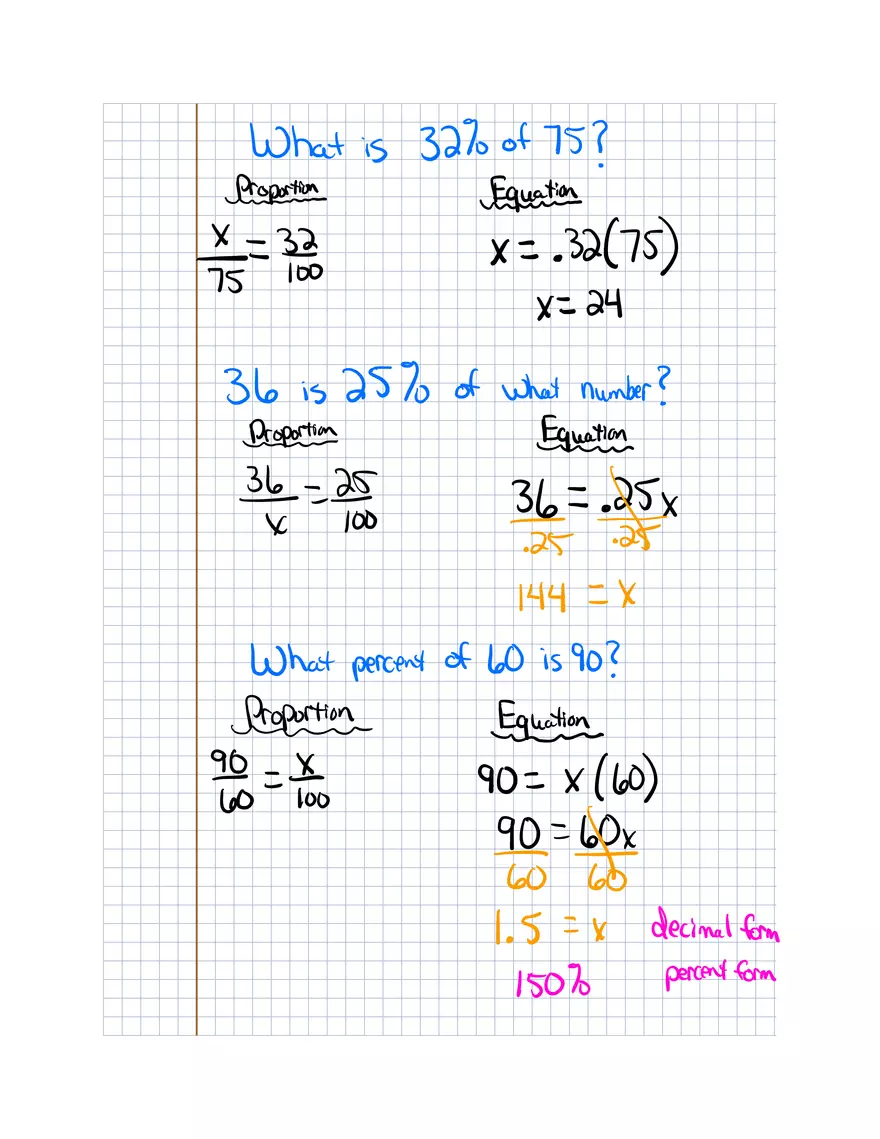 What is 32% of 75?
Proportion Equation
x/75 = 32/100 x = .32(75)
x = 24
36 is 25% of what number?
Proportion Equation
36/x = 25/100 36 = .25x
.25 .25
144 = x
What percent of 60 is 90?
Proportion Equation
90/60 = x/100 90 = x(60)
90 = 60x
60 60
1.5 = x decimal form
150% percent form